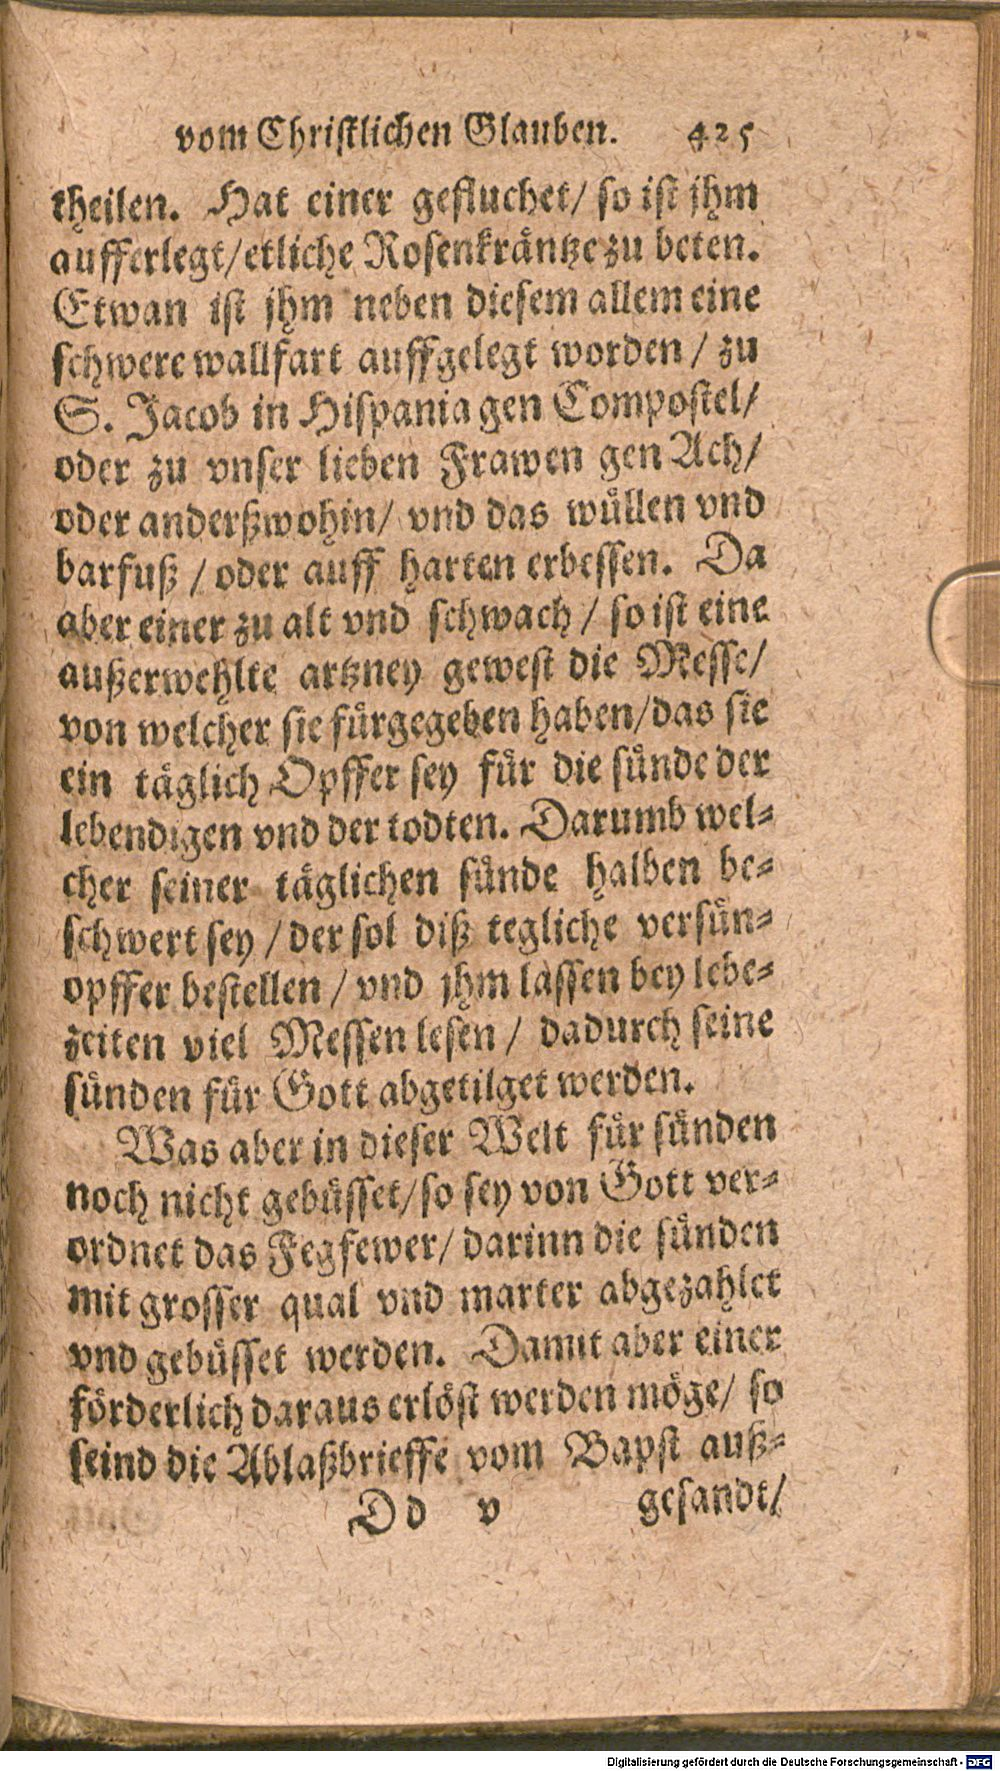 vom Christlichen Glauben. 425
theilen. Hat einer gefluchet/ so ist jhm
aufferlegt/etliche Rosenkräntze zu beten.
Etwan ist jhm neben diesem allem eine
schwere wallfart auffgelegt worden / zu
S. Jacob in Hispania gen Compostel/
oder zu vnser lieben Frawen gen Ach/
oder anderßwohin/ vnd das wüllen vnd
barfuß / oder auff harten erbessen. Da
aber einer zu alt vnd schwach / so ist eine
außerwehlte artzney gewest die Messe/
von welcher sie fürgegeben haben/das sie
ein täglich Opffer sey für die sünde der
lebendigen vnd der todten. Darumb wel-
cher seiner täglichen sünde halben be-
schwert sey / der sol diß tegliche versün-
opffer bestellen / vnd jhm lassen bey lebe-
zeiten viel Messen lesen / dadurch seine
sünden für Gott abgetilget werden.
Was aber in dieser Welt für sünden
noch nicht gebüsset/so sey von Gott ver-
ordnet das Fegfewer/ darinn die sünden
mit grosser qual vnd marter abgezahlet
vnd gebüsset werden. Damit aber einer
förderlich daraus erlöst werden möge/ so
seind die Ablaßbrieffe vom Bapst auß-
Dd v gesandt/
Digitalisierung gefördert durch die Deutsche Forschungsgemeinschaft - DFG